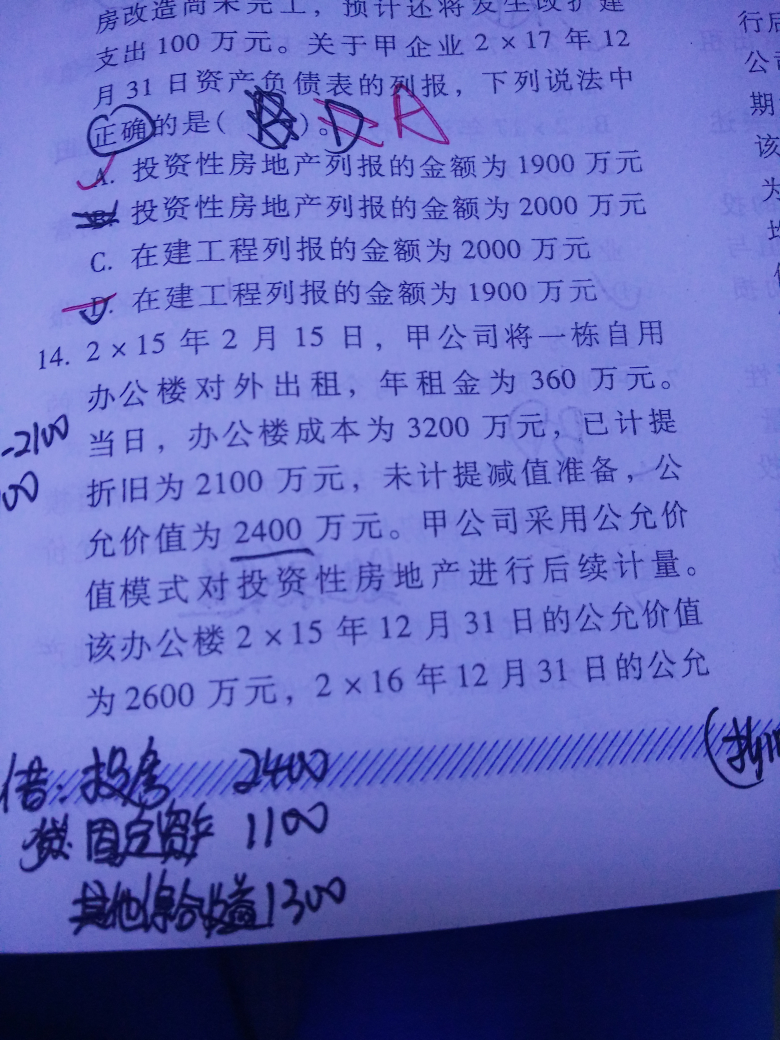 房改造尚未完工，预计还将发生改扩建
支出100万元。关于甲企业2×17年12
月31日资产负债表的列报，下列说法中
正确的是( )。D A
A. 投资性房地产列报的金额为1900万元
B. 投资性房地产列报的金额为2000万元
C. 在建工程列报的金额为2000万元
D. 在建工程列报的金额为1900万元
14. 2×15年2月15日，甲公司将一栋自用
办公楼对外出租，年租金为360万元。
当日，办公楼成本为3200万元，已计提
折旧为2100万元，未计提减值准备，公
允价值为2400万元。甲公司采用公允价
值模式对投资性房地产进行后续计量。
该办公楼2×15年12月31日的公允价值
为2600万元，2×16年12月31日的公允
-2100
00
借：投房 2400
贷：固定资产 1100
其他综合收益1300
行后
公司
期
该
为